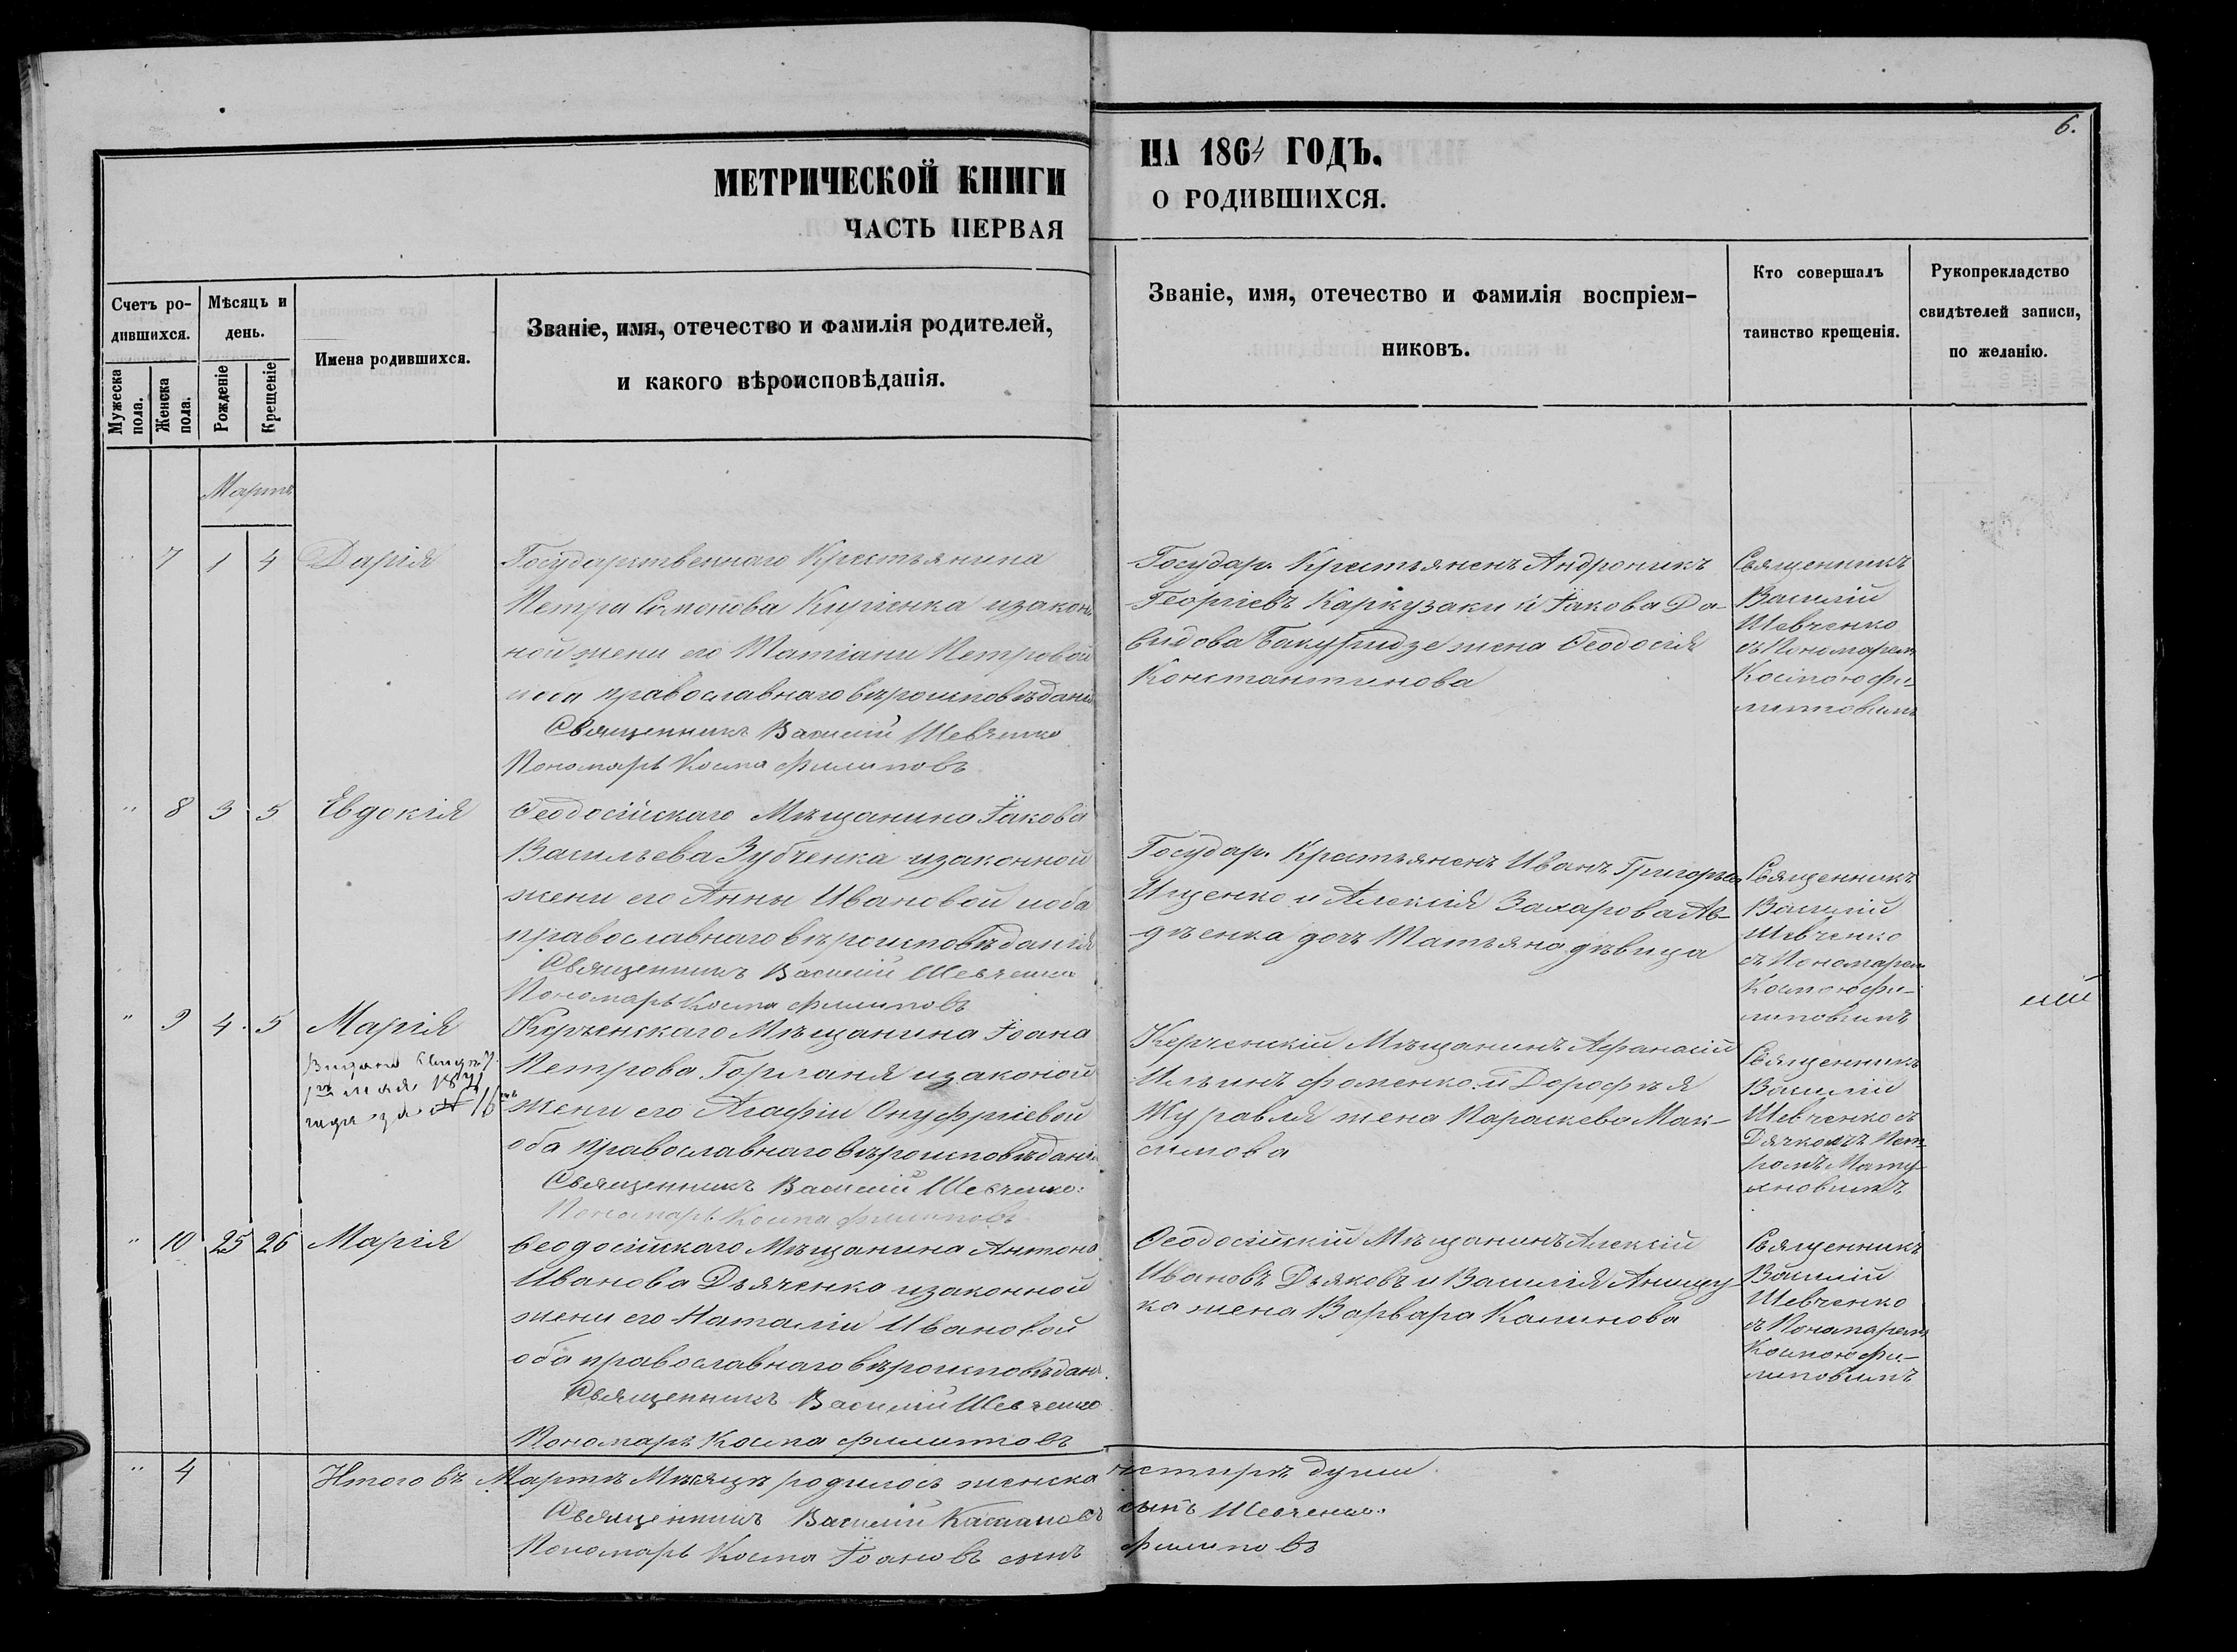 6.
МЕТРИЧЕСКОЙ КНИГИ
НА 1864 ГОДЪ.
ЧАСТЬ ПЕРВАЯ
О РОДИВШИХСЯ.
Счетъ ро-
дившихся.
Мѣсяцъ и
день.
Имена родившихся.
Званіе, имя, отечество и фамилія родителей,
и какого вѣроисповѣданія.
Званіе, имя, отечество и фамилія воспріем-
никовъ.
Кто совершалъ
таинство крещенія.
Рукопрекладство
свидѣтелей записи,
по желанію.
Мужеска
пола.
Женска
пола.
Рожденіе
Крещеніе
Мартъ
" 7 1 4 Дарія
Государственнаго Крестьянина
Петра Кирѣнка изакон
ной жени его Татіани Петровой
иоба православнаго вѣроисповѣдані
Священникъ Василій Шевченко
Пономарь Косма Филиповъ
Государ. Крестьяненъ Андроникъ
Георгіевъ Каркузаки и Іакова Да-
видова Бакуридзе жена Ѳеодосія
Константинова
Священникъ
Василій
Шевченко
съ Пономарем
Космою Фи-
липовимъ
" 8 3 5 Евдокія
Ѳеодосійскаго Мѣщанина Іакова
Васильева Зубченка изаконной
жени его Анны Ивановой иоба
православнаго вѣроисповѣданія
Священникъ Василій Шевченко
Пономарь Косма Филиповъ
Государ. Крестьяненъ Иванъ Григорьев
Ищенко и Алексія Захарова Ав-
дѣенка дочъ Татьяна дѣвица
Священникъ
Василій
Шевченко
съ Пономарем
Космою Фи-
липовимъ
" 9 4 5 Марія
1го мая 1871
года за № 16
Керченскаго Мѣщанина Іоана
Петрова Горпаня изаконой
жени его Агафіи Онуфріевой
оба Православнаго вѣроисповѣдані
Священникъ Василій Шевченко.
Пономарь Косма Филиповъ
Керченскій Мѣщанинъ Афанасій
Ильинъ Фоменко. и Дорофѣя
Журавля жена Параскева Мак-
симова
Священникъ
Василій
Шевченко съ
Дячкомъ Пет-
ромъ
" 10 25 26 Марія
Ѳеодосійскаго Мѣщанина Антона
Иванова Дьяченка изаконной
жени его Наталіи Ивановой
оба православнаго вѣроисповѣдан.
Священникъ Василій Шевченко
Пономарь Косма Филиповъ
Ѳеодосійскій Мѣщанинъ Алексій
Ивановъ Дьяковъ и Василія Анищу
ка жена Варвара Калинова
Священникъ
Василій
Шевченко
съ Пономарем
Космою Фи-
липовимъ
" 4 Итого въ Мартѣ Мѣсяцѣ родилось женска четирѣ души
Священникъ Василій сынъ Шевченко.
Пономарь Косма Іоановъ синъ Филиповъ